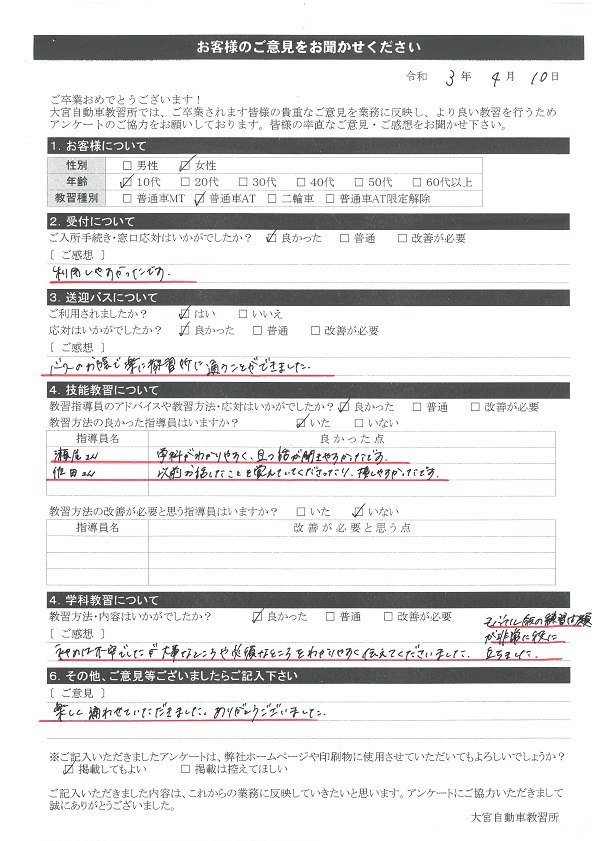 お客様のご意見をお聞かせください
令和 3 年 4 月 10 日
ご卒業おめでとうございます！
大宮自動車教習所では、ご卒業されます皆様の貴重なご意見を業務に反映し、より良い教習を行うため
アンケートのご協力をお願いしております。皆様の率直なご意見・ご感想をお聞かせ下さい。
1. お客様について
性別 □ 男性 ☑ 女性
年齢 ☑ 10代 □ 20代 □ 30代 □ 40代 □ 50代 □ 60代以上
教習種別 □ 普通車MT ☑ 普通車AT □ 二輪車 □ 普通車AT限定解除
2. 受付について
ご入所手続き・窓口応対はいかがでしたか？ ☑ 良かった □ 普通 □ 改善が必要
［ ご感想 ］
利用しやすかったです。
3. 送迎バスについて
ご利用されましたか？ ☑ はい □ いいえ
応対はいかがでしたか？ ☑ 良かった □ 普通 □ 改善が必要
［ ご感想 ］
バスのお陰で楽に教習所に通うことができました。
4. 技能教習について
教習指導員のアドバイスや教習方法・応対はいかがでしたか？ ☑ 良かった □ 普通 □ 改善が必要
教習方法の良かった指導員はいますか？ ☑ いた □ いない
指導員名 良かった点
瀬尾さん 学科がわかりやすく、且つ話が聞きやすかったです。
佐田さん 以前お話したことを覚えていてくださったり、接しやすかったです。
教習方法の改善が必要と思う指導員はいますか？ □ いた ☑ いない
指導員名 改善が必要と思う点
4. 学科教習について
教習方法・内容はいかがでしたか？ ☑ 良かった □ 普通 □ 改善が必要
［ ご感想 ］
初めは不安でしたが大事なところや必要なところをわかりやすく伝えてくださいました。
の練習問題
が非常に役に
立ちました。
6. その他、ご意見等ございましたらご記入下さい
［ ご意見 ］
楽しく通わせていただきました。ありがとうございました。
※ご記入いただきましたアンケートは、弊社ホームページや印刷物に使用させていただいてもよろしいでしょうか？
☑ 掲載してもよい □ 掲載は控えてほしい
ご記入いただきました内容は、これからの業務に反映していきたいと思います。アンケートにご協力いただきまして
誠にありがとうございました。
大宮自動車教習所